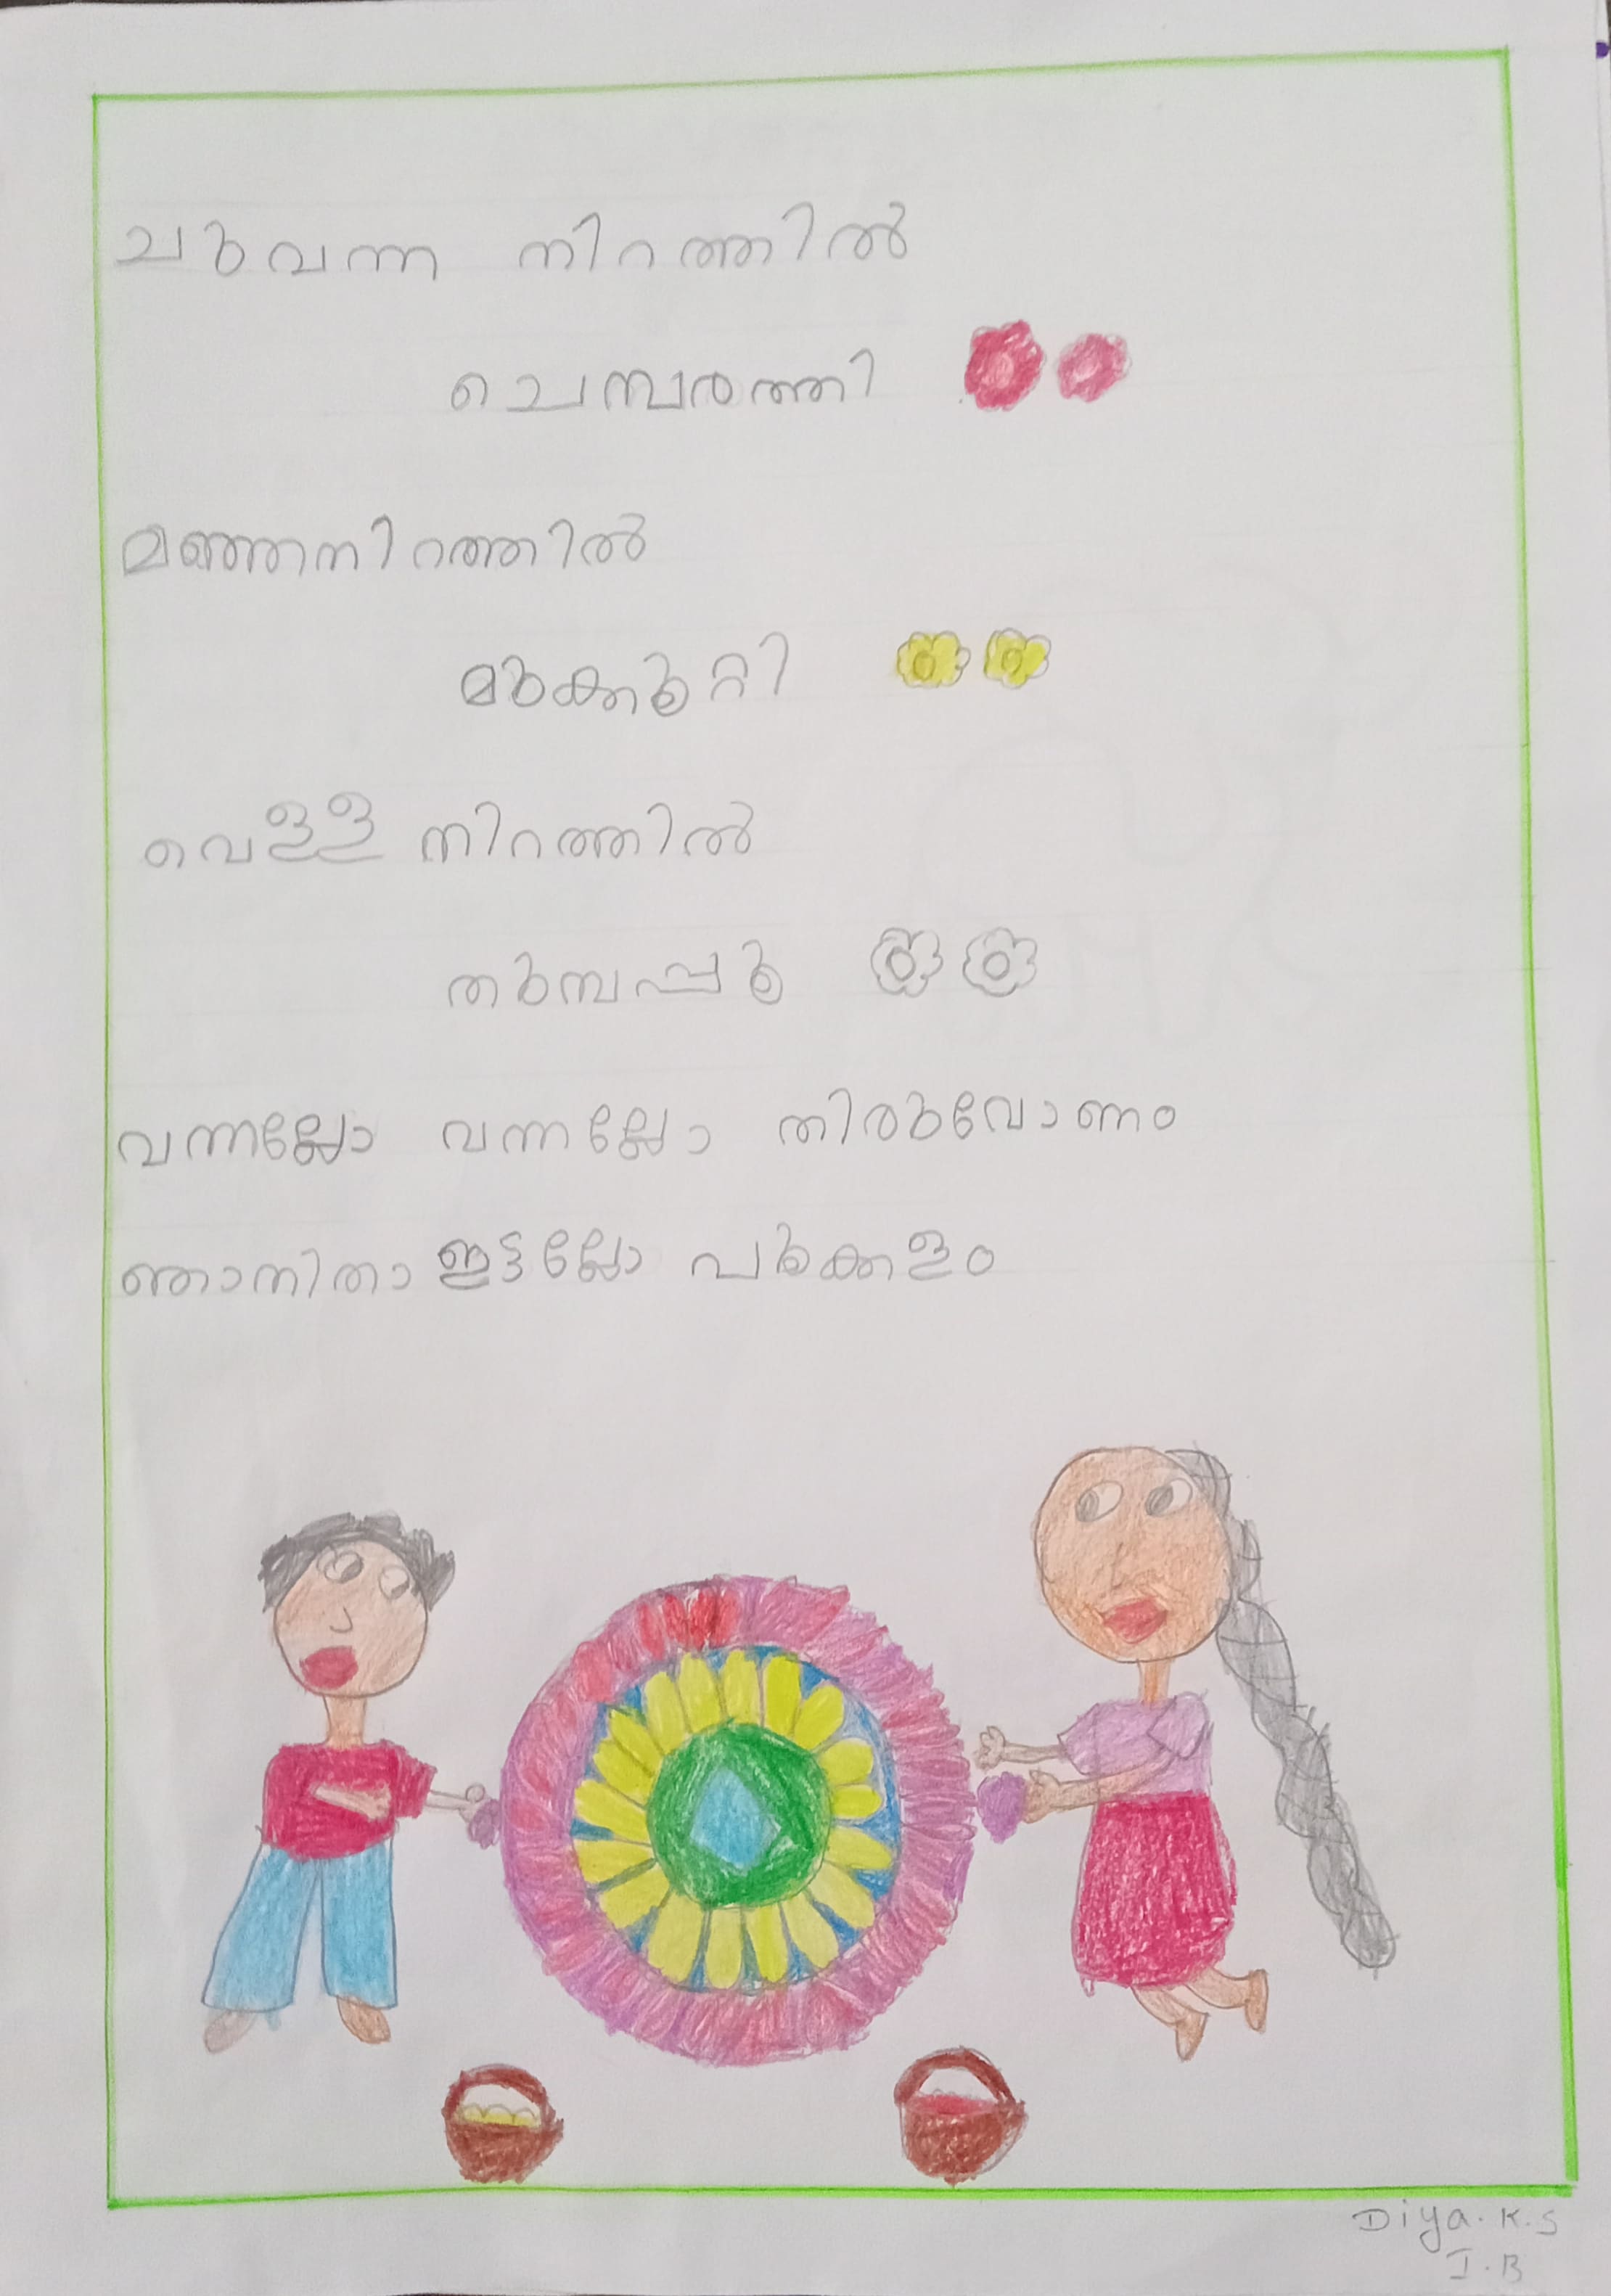 ചുവന്ന നിറത്തിൽ
ചെമ്പരത്തി
മഞ്ഞനിറത്തിൽ
മുക്കൂറ്റി
വെള്ള നിറത്തിൽ
തുമ്പപ്പൂ
വന്നല്ലോ വന്നല്ലോ തിരുവോണം
ഞാനിതാ ഇട്ടല്ലോ പൂക്കളം
Diya. K. S
I. B